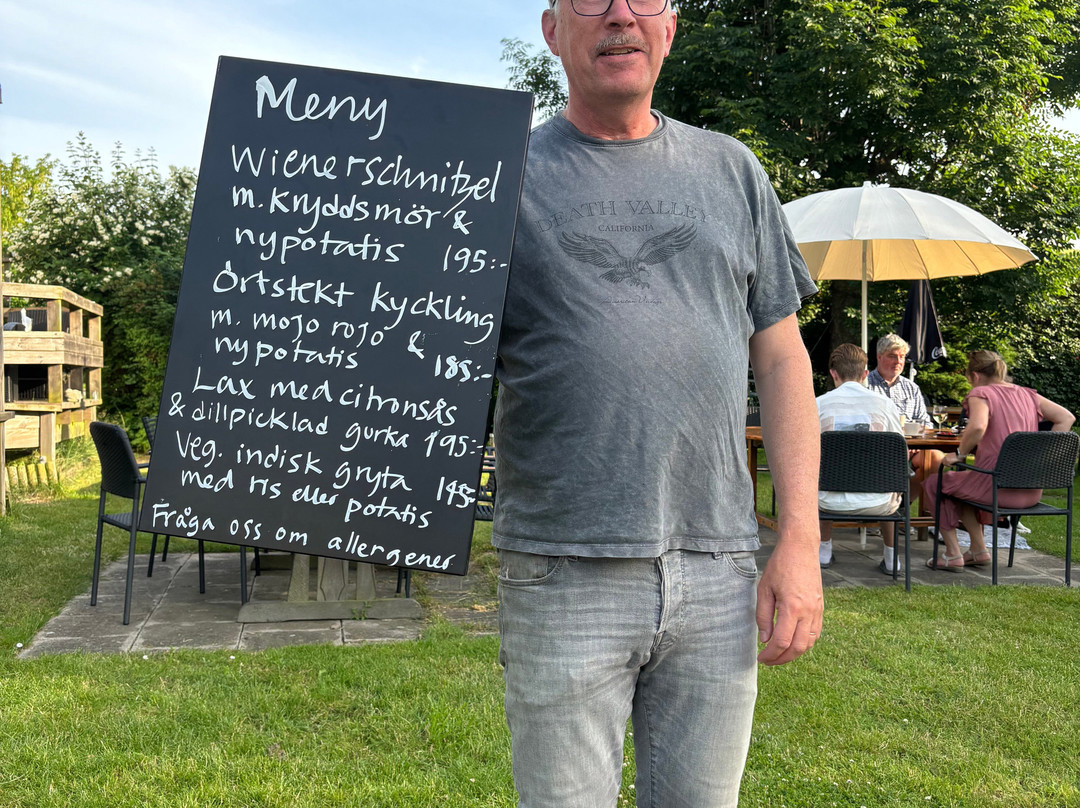 Meny
Wienerschnitzel
m. Kryddsmör &
nypotatis 195:-
Örtstekt kyckling
m. mojo rojo &
nypotatis 185:-
Lax med citronsås
& dillpicklad gurka 195:-
Veg. indisk gryta
med ris eller potatis 145:-
Fråga oss om allergener
DEATH VALLEY
CALIFORNIA